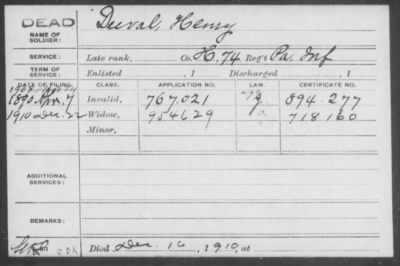 DEAD
Duval, Henry
NAME OF
SOLDIER:
SERVICE: Late rank, Co. H, 74 Reg't Pa. Inf
TERM OF
SERVICE: Enlisted , 1 Discharged , 1
DATE OF FILING. CLASS. APPLICATION NO. LAW. CERTIFICATE NO.
1890 Apr. 7 Invalid, 767.021 894.277
1910 Dec. 22 Widow, 954629 718160
Minor,
ADDITIONAL
SERVICES:
REMARKS:
ODK Died Dec. 16, 1910, at